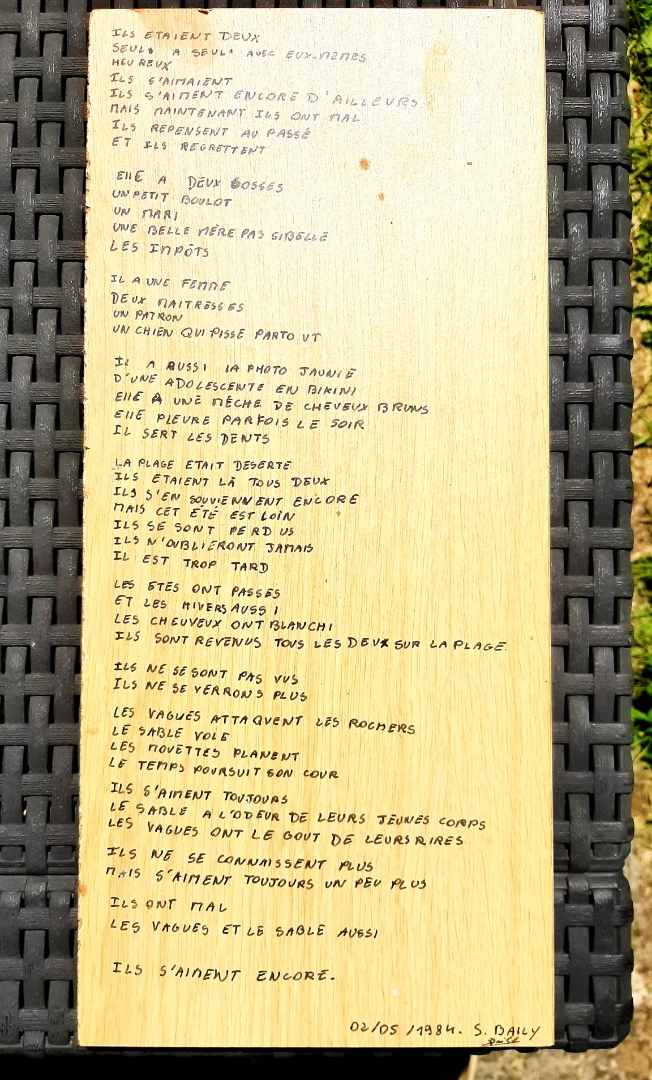 ILS ETAIENT DEUX
SEULS A SEULS AVEC EUX-MEMES
HEUREUX
ILS S'AIMAIENT
ILS S'AIMENT ENCORE D'AILLEURS
MAIS MAINTENANT ILS ONT MAL
ILS REPENSENT AU PASSÉ
ET ILS REGRETTENT
ELLE A DEUX GOSSES
UN PETIT BOULOT
UN MARI
UNE BELLE MÈRE PAS SIBELLE
LES IMPÔTS
IL A UNE FEMME
DEUX MAITRESSES
UN PATRON
UN CHIEN QUI PISSE PARTOUT
IL A AUSSI LA PHOTO JAUNIE
D'UNE ADOLESCENTE EN BIKINI
ELLE A UNE MÈCHE DE CHEVEUX BRUNS
ELLE PLEURE PARFOIS LE SOIR
IL SERT LES DENTS
LA PLAGE ETAIT DESERTE
ILS ETAIENT LÀ TOUS DEUX
ILS S'EN SOUVIENNENT ENCORE
MAIS CET ÉTÉ EST LOIN
ILS SE SONT PERDUS
ILS N'OUBLIERONT JAMAIS
IL EST TROP TARD
LES ETES ONT PASSES
ET LES HIVERS AUSSI
LES CHEUVEUX ONT BLANCHI
ILS SONT REVENUS TOUS LES DEUX SUR LA PLAGE.
ILS NE SE SONT PAS VUS
ILS NE SE VERRONS PLUS
LES VAGUES ATTAQUENT LES ROCHERS
LE SABLE VOLE
LES MOUETTES PLANENT
LE TEMPS POURSUIT SON COUR
ILS S'AIMENT TOUJOURS
LE SABLE A L'ODEUR DE LEURS JEUNES CORPS
LES VAGUES ONT LE GOUT DE LEURS RIRES
ILS NE SE CONNAISSENT PLUS
MAIS S'AIMENT TOUJOURS UN PEU PLUS
ILS ONT MAL
LES VAGUES ET LE SABLE AUSSI
ILS S'AIMENT ENCORE.
02/05/1984. S. BAILY